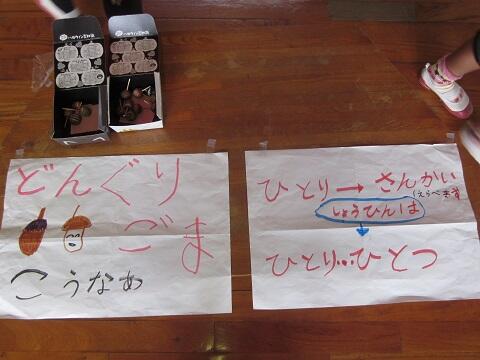 どんぐり
ごま
こうなあ
ひとり→さんかい
(えらべます
しょうひんは
ひとり…ひとつ